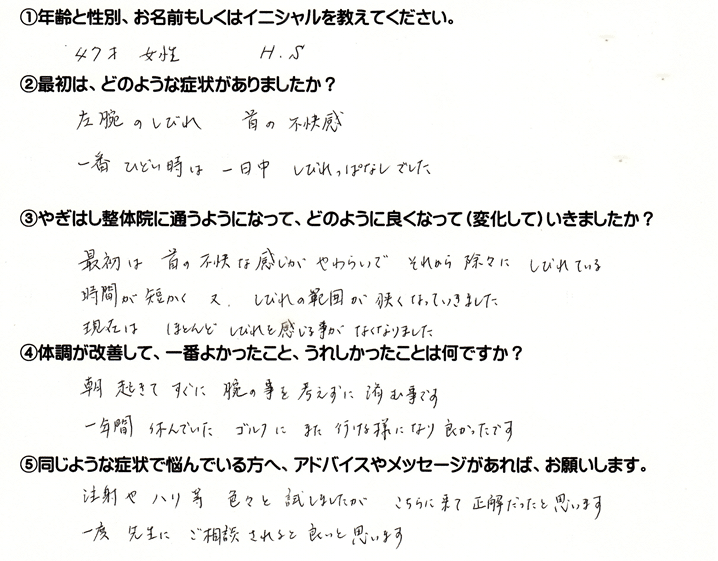 ①年齢と性別、お名前もしくはイニシャルを教えてください。
47才 女性 H.S
②最初は、どのような症状がありましたか？
左腕のしびれ 首の不快感
一番ひどい時は一日中しびれっぱなしでした
③やぎはし整体院に通うようになって、どのように良くなって（変化して）いきましたか？
最初は首の不快な感じがやわらいで それから除々にしびれている
時間が短かく又、しびれの範囲が狭くなっていきました
現在はほとんどしびれを感じる事がなくなりました
④体調が改善して、一番よかったこと、うれしかったことは何ですか？
朝起きてすぐに腕の事を考えずに済む事です
一年間休んでいたゴルフにまた行ける様になり良かったです
⑤同じような症状で悩んでいる方へ、アドバイスやメッセージがあれば、お願いします。
注射やハリ等色々と試しましたがこちらに来て正解だったと思います
一度先生にご相談されると良いと思います